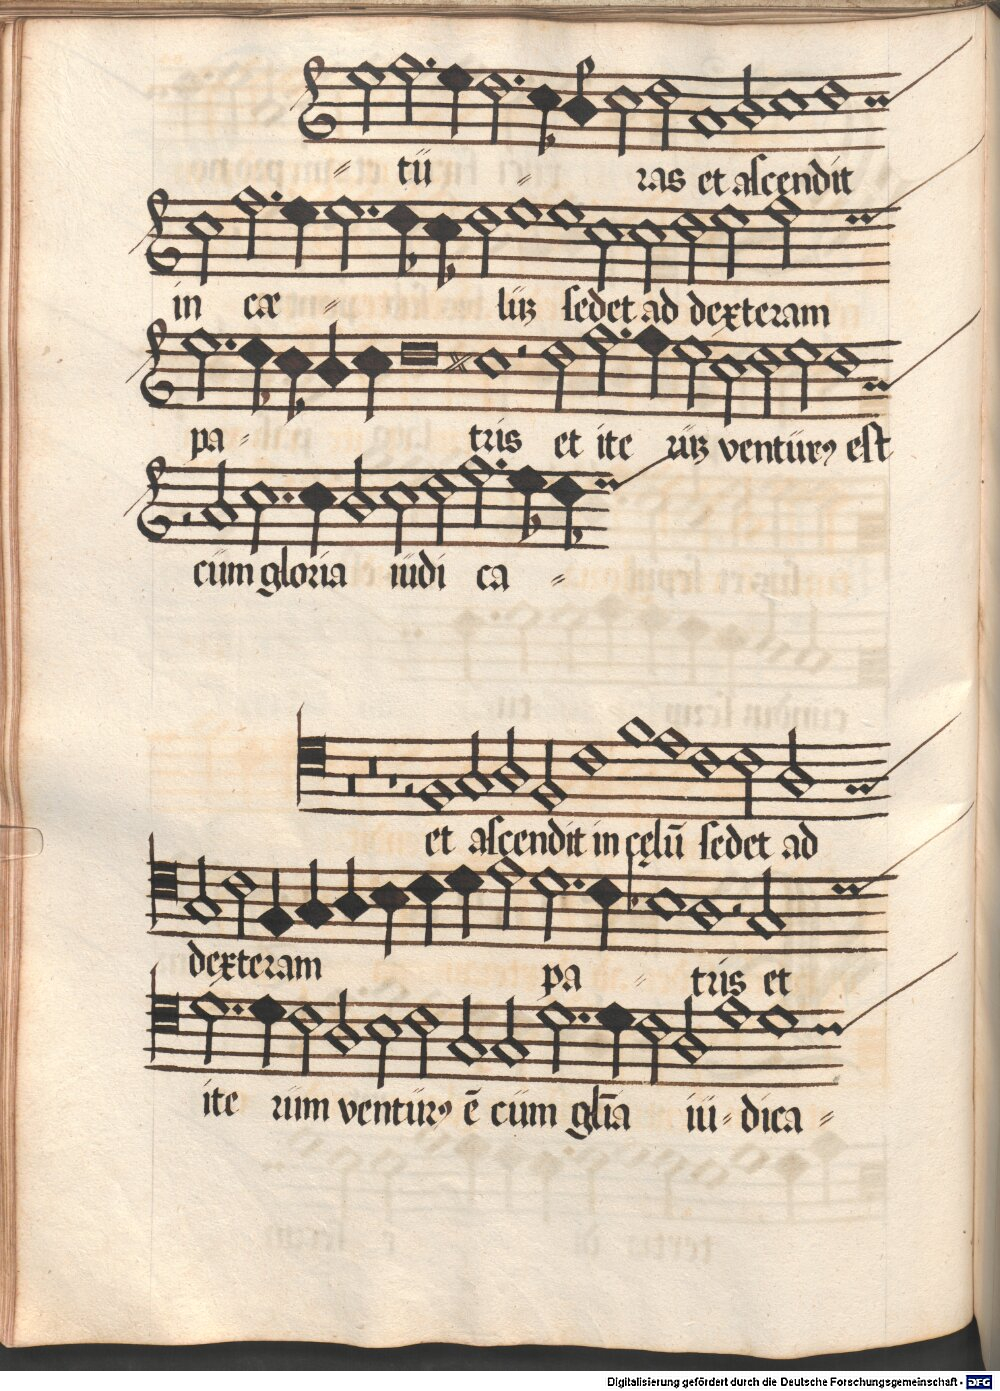 tū ras et ascendit
in cæ lūꝫ sedet ad dexteram
pa- tris et ite rūꝫ ventūrꝰ est
cūm gloria iūdi ca
et ascendit in cęlū sedet ad
dexteram pa tris et
ite rūm ventūrꝰ ē cūm glīa iū dica
Digitalisierung gefördert durch die Deutsche Forschungsgemeinschaft - DFG